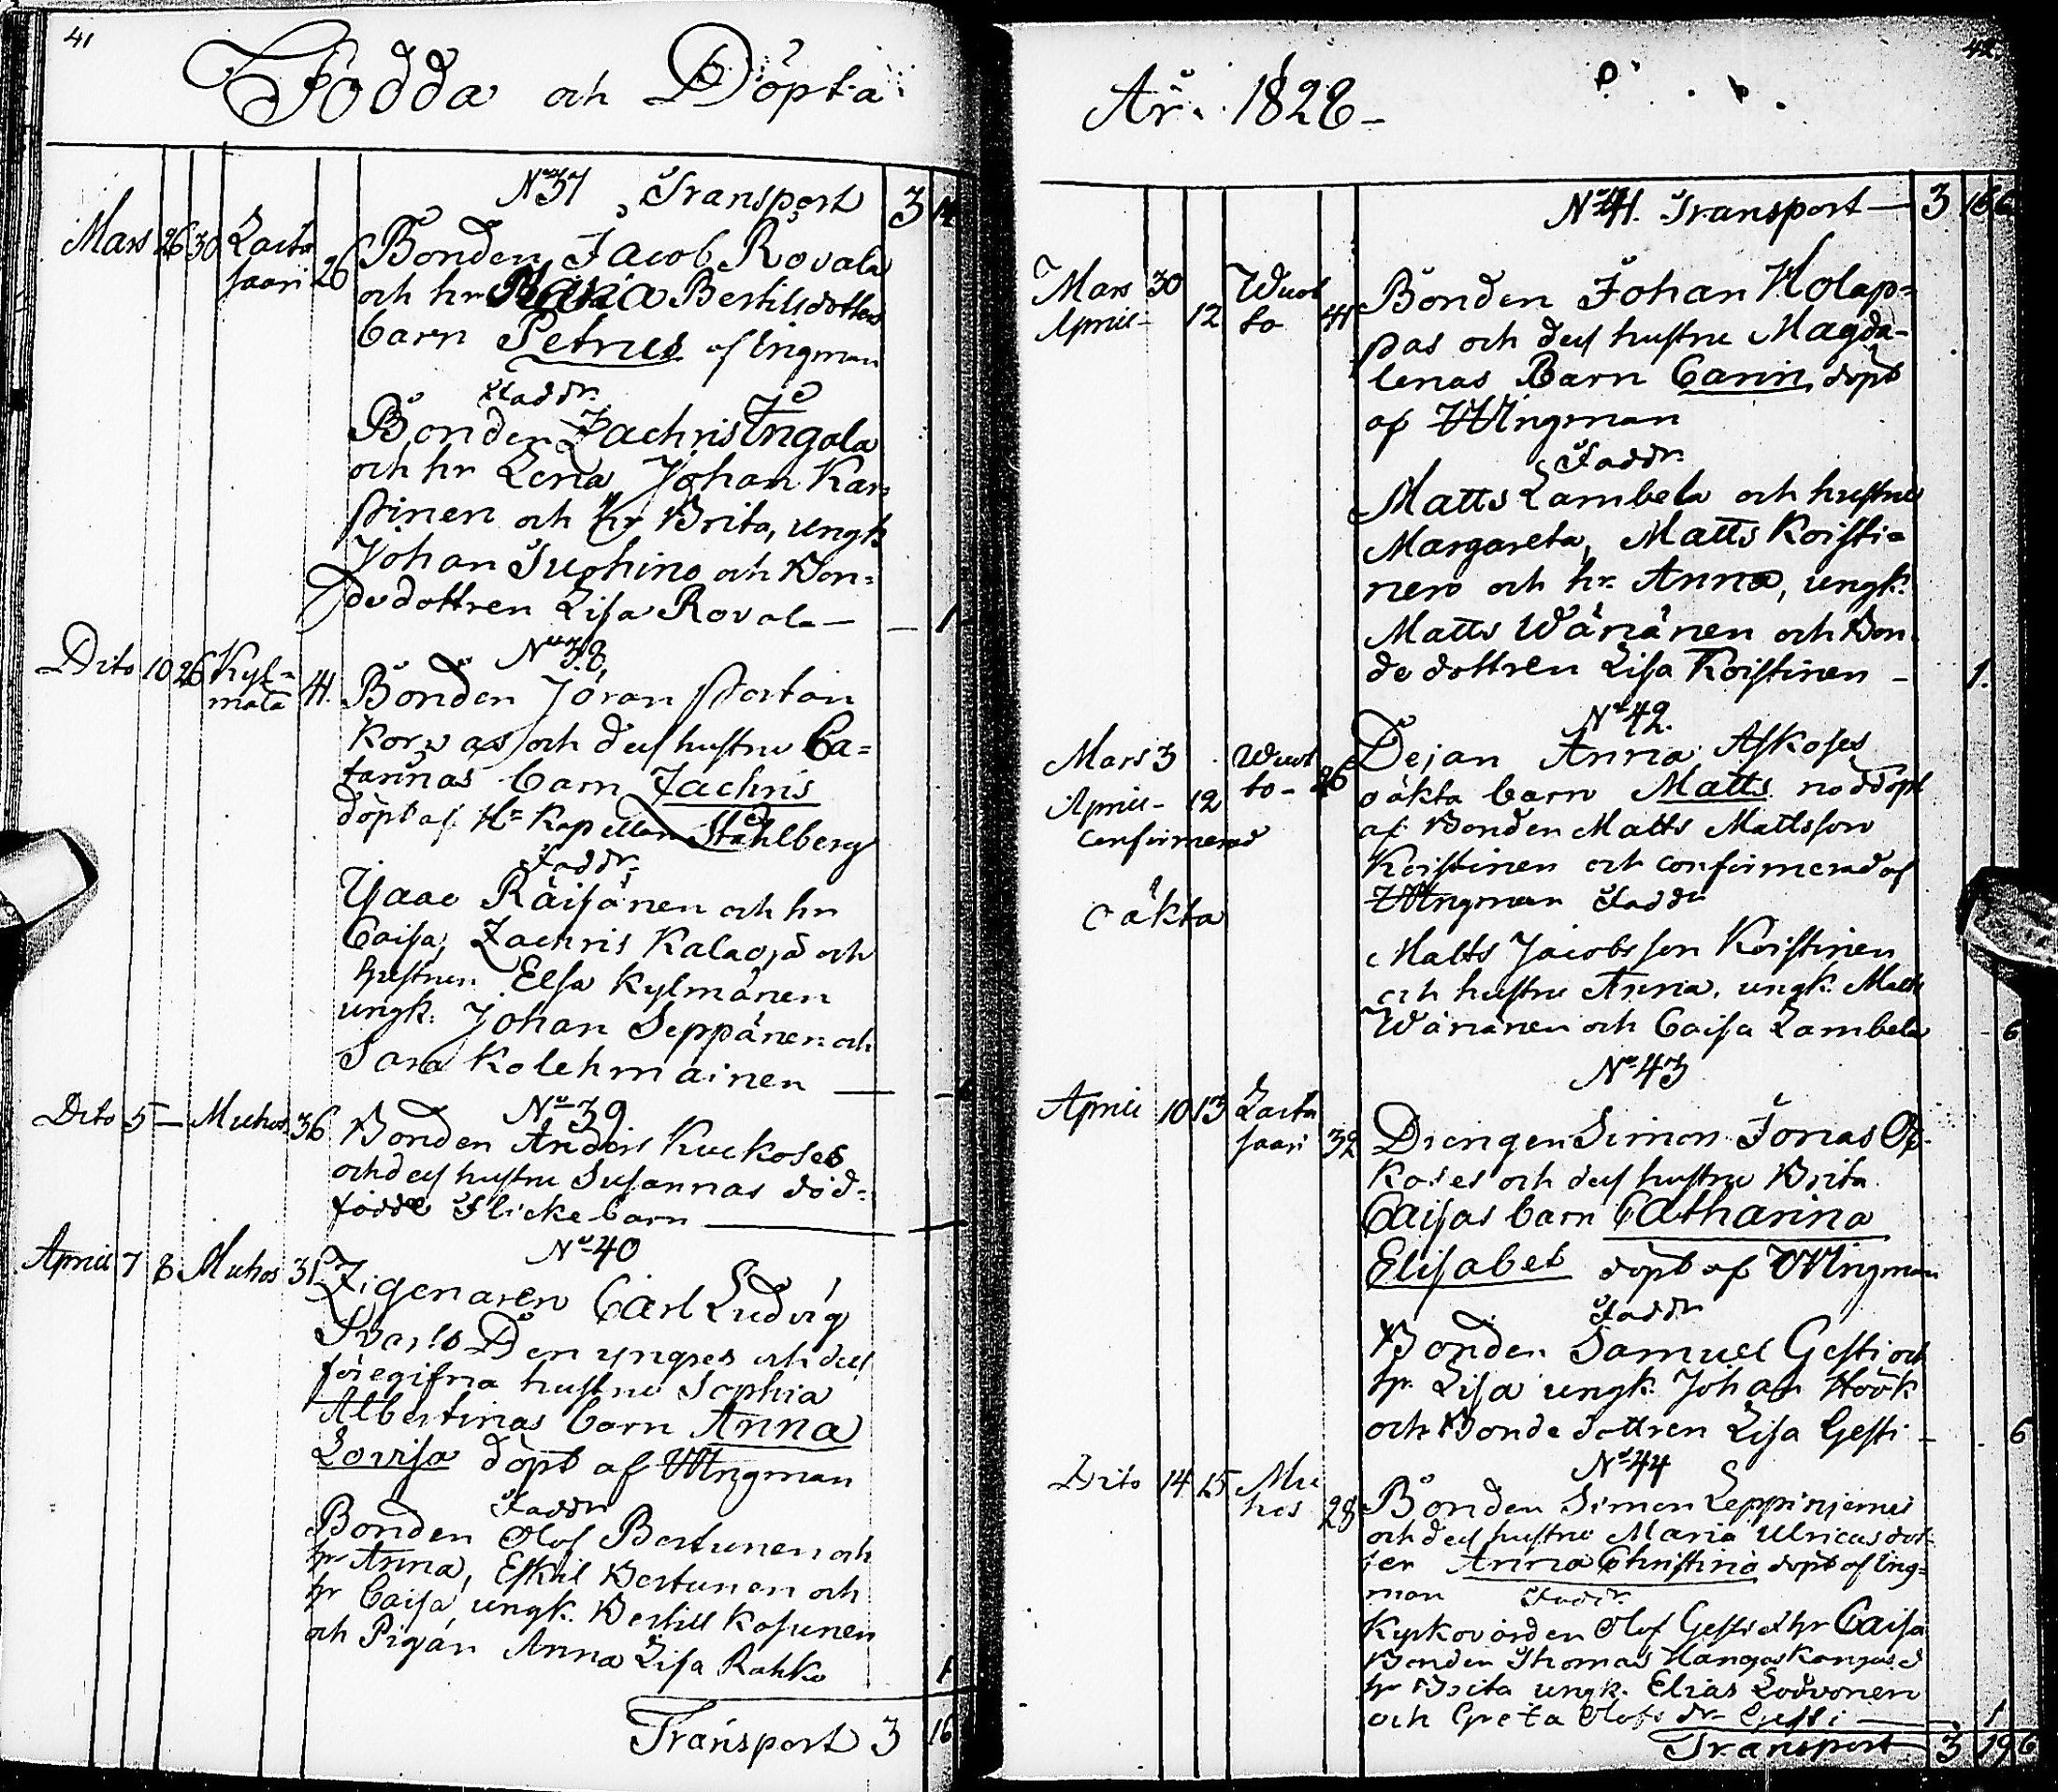 41
Födda och Döpta
No 37 Transport 3
Mars 26 30 Laita
saari 26 Bonden Jacob Rovala
och hr Bertilsdotters
barn Petrus af Ungman
Faddr
Bonden Zachris Ingala
och hr Lena, Johan Kar-
pinen och hr Brita, ungk.
Johan Tuohino och Bon-
dedottren Lisa Rovala — — 1
No 38
Dito 10 26 Kyl-
mälä 41. Bonden Jöran
och dess hustru Ca-
barn Zachris
döpt af Hr Kapellan Ståhlberg
Faddr.
Isaac Räisänen och hr
Caisa, Zachris Kalaoja och
hustrun Elsa Kylmänen
ungk. Johan Seppänen och
Sara Kolehmainen —
No 39
Dito 5 — Muhos 36 Bonden Anders Kuckoses
och dess hustru Susannas död-
födde Flickebarn —
No 40
Aprill 7 8 Muhos 31 Zigenaren Carl Ludvig
Svarts Den yngres och dess
föregifna hustru Sophia
Albertinas barn Anna
Lovisa döpt af Ungman
Faddr
Bonden Olof Bertunen och
hr Anna, Eskil Bertunen och
hr Caisa, ungk. Bertill Kosunen
och Pigan Anna Lisa Rahko 1
Transport 3 16
42
År 1828-
No 41. Transport — 3 16 6
Mars 30 Wuol
Aprill- 12 to 41 Bonden Johan Holap-
pas och dess hustru Magda-
lenas Barn Carin, döpt
af Ungman
Faddr.
Matts Lambela och hustru
Margareta, Matts Koisti-
nen och hr. Anna, ungk.
Matts Wänänen och Bon-
de dottren Lisa Koistinen - 1.
No 42.
Mars 3 Wuol
to- 26 Dejan Anna Askoses
Aprill- 12 oäkta barn Matts nöddöpt
Confirmerad af Bonden Matts Mattsson
Koistinen och confirmerad af
oäkta Ungman Faddr
Matts Jacobsson Koistinen
och hustru Anna, ungk. Matts
Wänänen och Caisa Lambela - 6
No 43
Aprill 10 13 Laita
saari 32 Drengen Simon Jonas
och dess hustru Brita
Caisas barn Catharina
Elisabet döpt af Ungman
Faddr
Bonden Samuel Gesti och
hr. Lisa ungk. Johan Höök
och Bonde dottren Lisa Gesti - 6
No 44
Dito 14 15 Mu
hos 28 Bonden Simon Leppiniemis
och dess hustru Maria Ulricas dot-
ter Anna Christina döpt af Ung-
man Faddr.
Kyrkovärden Olof Gesti o hr Caisa
Bonden Thomas
hr Brita ungk. Elias
och Greta Olofs dr Gesti — 1
Transport 3 19 6